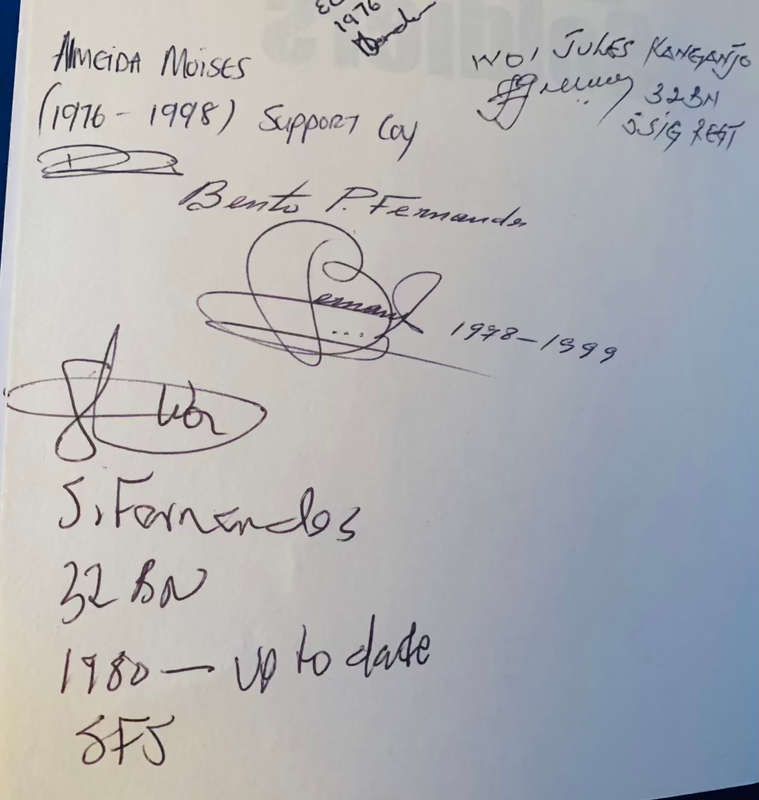 1976
ALMEIDA MOISES
(1976 - 1998) SUPPORT COY
WO1 JULES KANGANJO
32BN
5SIG REGT
Bento P. Fernandes
1978-1999
S. Fernandes
32 BN
1980 — up to date
SFS